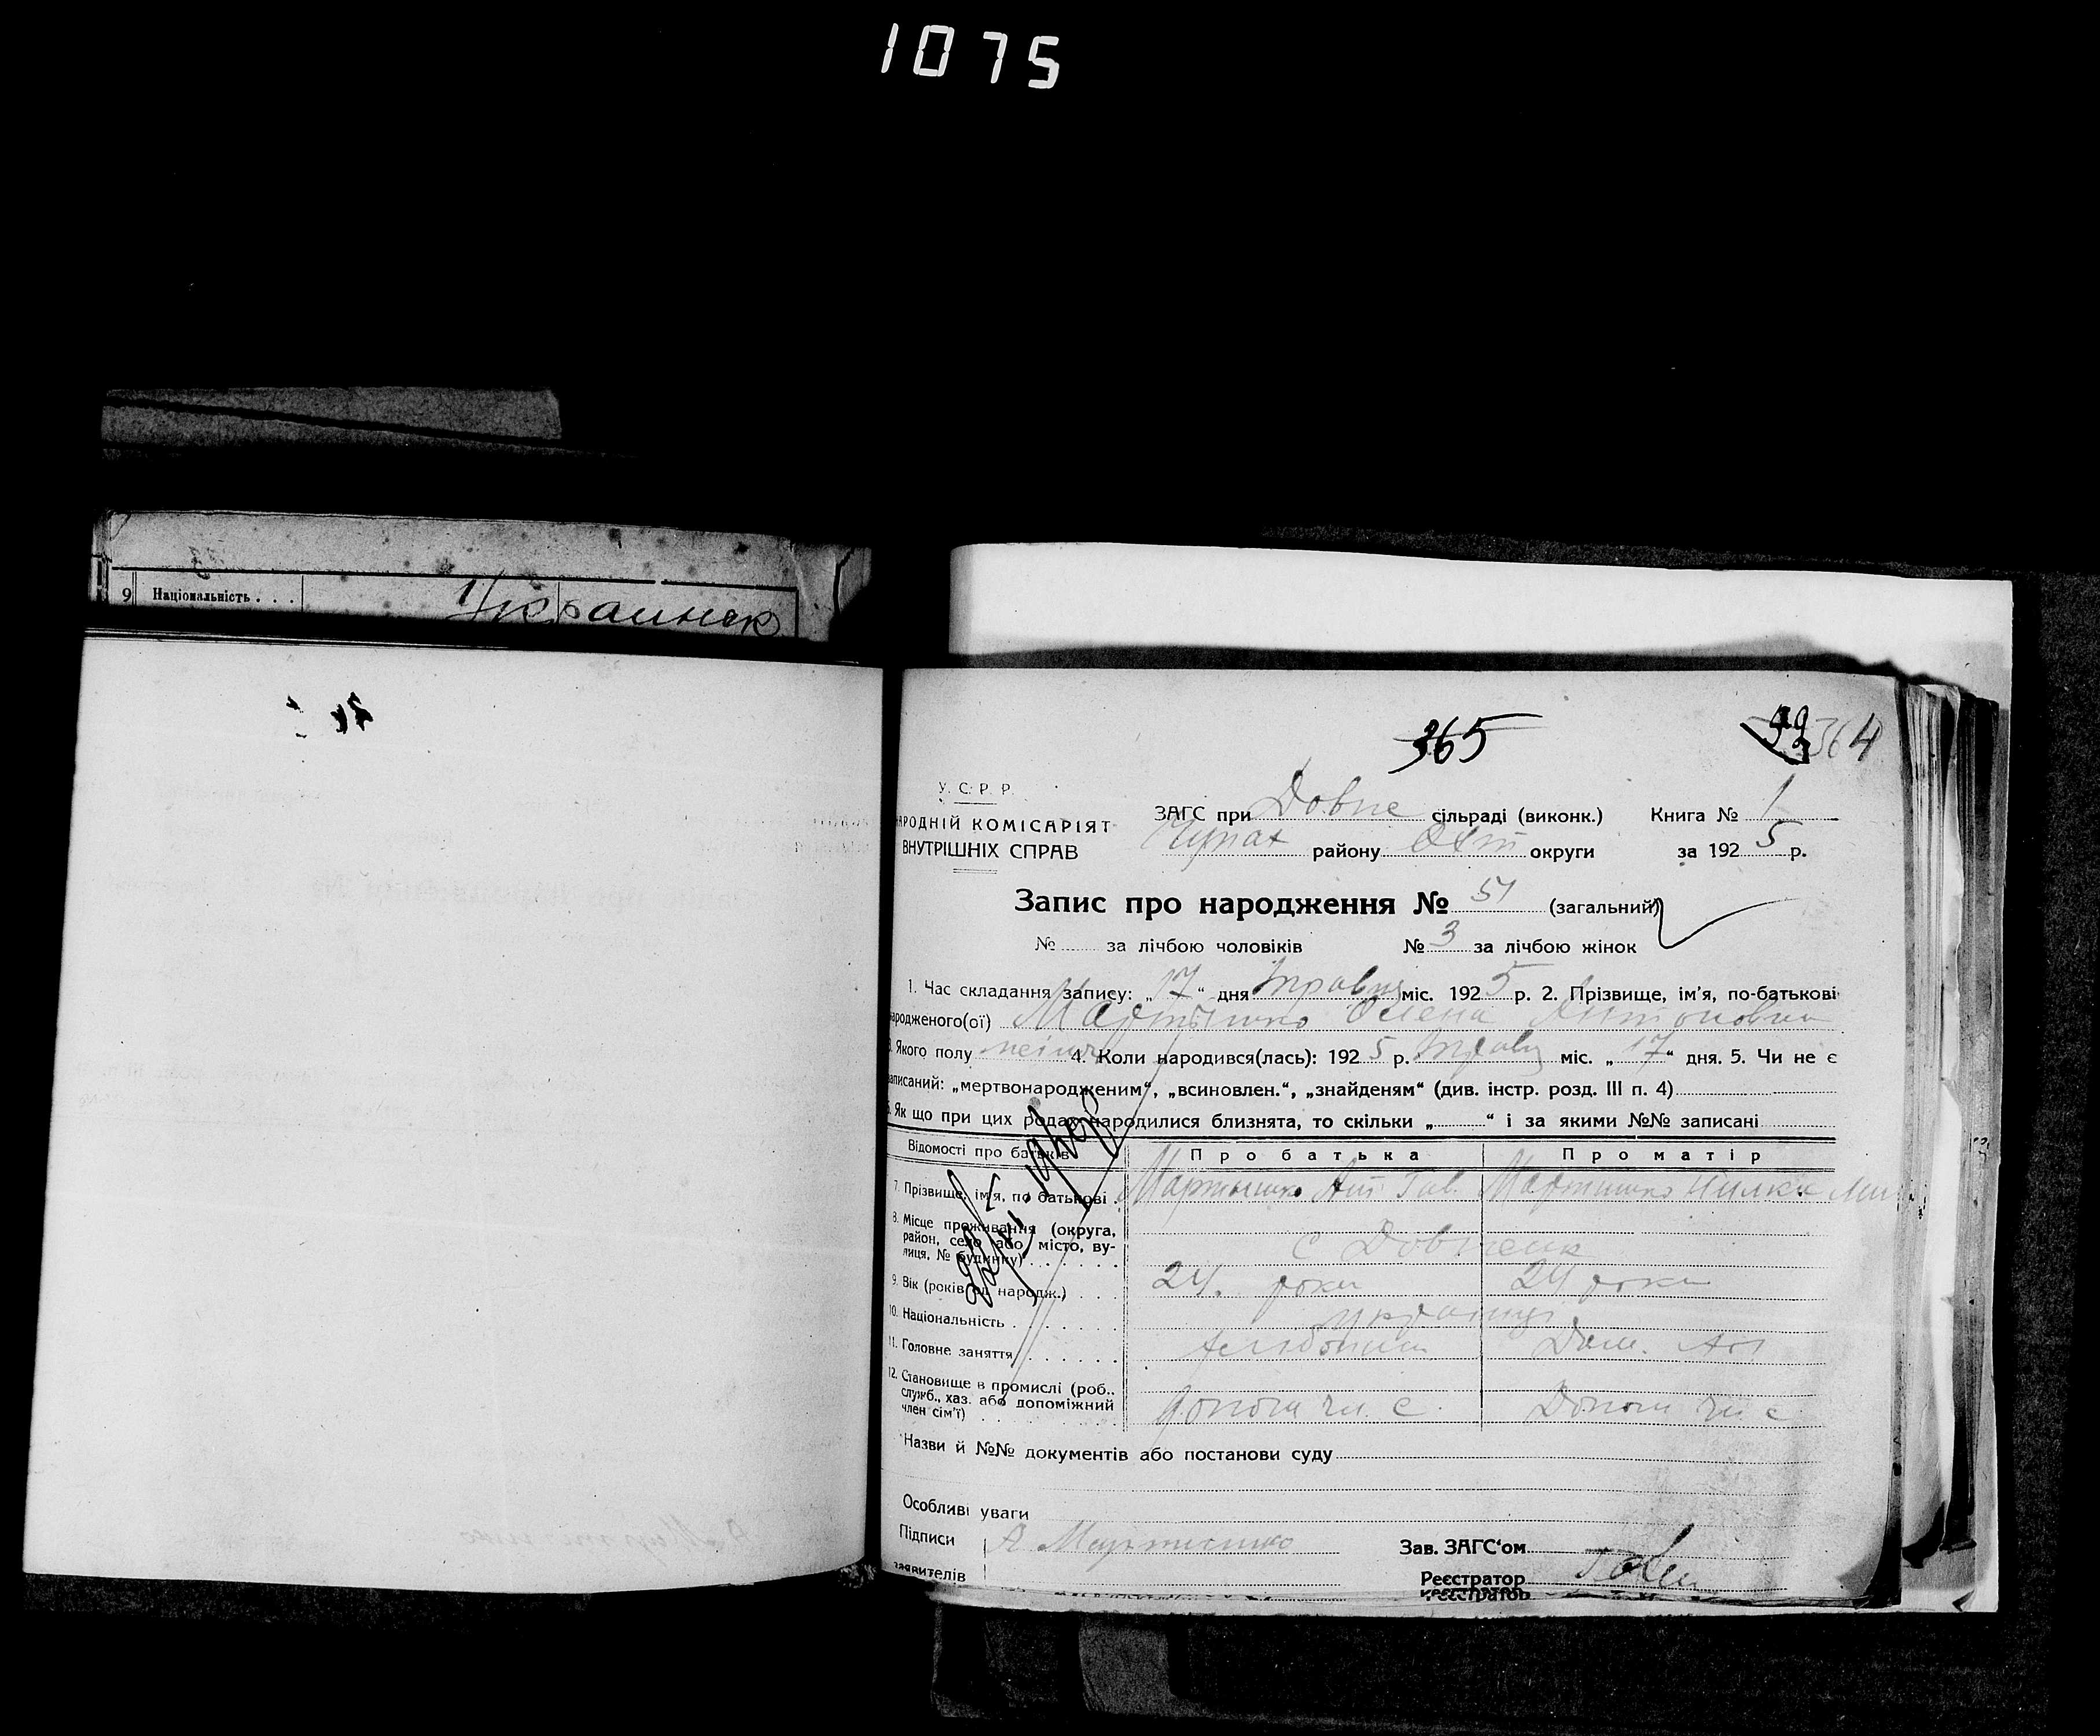 1075
9 Національність . . .
365
364
У. С. Р. Р.
НАРОДНІЙ КОМІСАРІЯТ
ВНУТРІШНІХ СПРАВ
ЗАГС при Довже сільраді (виконк.) Книга № 1
Чупах району Охт округи за 1925 р.
Запис про народження № 51 (загальний)
№ за лічбою чоловіків № 3 за лічбою жінок
1. Час складання запису: „17“ дня травня міс. 1925 р. 2. Прізвище, ім'я, по-батькові
народженого(ої) Мартышко Олена Антоновна
3. Якого полу 4. Коли народився(лась): 1925 р. травня міс. „17“ дня. 5. Чи не є
записаний: „мертвонародженим“, „всиновлен.“, „знайденям“ (див. інстр. розд. III п. 4)
6. Як що при цих родах народилися близнята, то скільки „ “ і за якими №№ записані
Відомості про батьків Про батька Про матір
7. Прізвище, ім'я, по батькові . Мартышко Ант Гав. Мартышко
8. Місце проживання (округа,
район, село або місто, ву-
лиця, № будинку) . . . . . . с
9. Вік (років від народж.) . . . 24. роки 24 роки
10. Національність . . . . . . . українці
11. Головне заняття . . . . . . хлібопаш Дом.
12. Становище в промислі (роб.,
служб., хаз. або допоміжний
член сім'ї) . . . . . . . допом чл. с. Допом чл с
Назви й №№ документів або постанови суду
Особливі уваги
Підписи А. Мартышко Зав. ЗАГС'ом
заявителів Реєстратор
Реєстратор